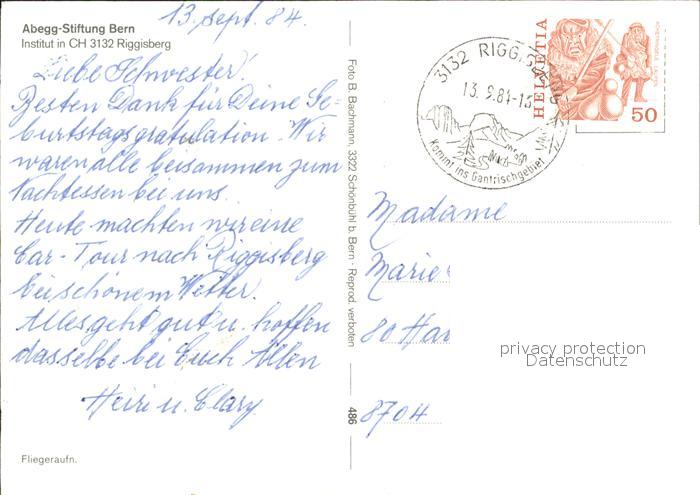 13. Sept. 84.
Abegg-Stiftung Bern
Institut in CH 3132 Riggisberg
Liebe Schwester!
Besten Dank für Deine Ge-
burtstagsgratulation. Wir
waren alle beisammen zum
Nachtessen bei uns.
Heute machten wir eine
Car-Tour nach Riggisberg
bei schönem Wetter.
Alles geht gut u. hoffen
dasselbe bei Euch Allen
Heiri u. Clary
Fliegeraufn.
Foto B. Bachmann, 3322 Schönbühl b. Bern · Reprod. verboten
486
3132 RIGGISBERG
13.9.84-15
Kommt ins Gantrischgebiet
HELVETIA
50
Madame
Marie
80 Har
8704
privacy protection
Datenschutz